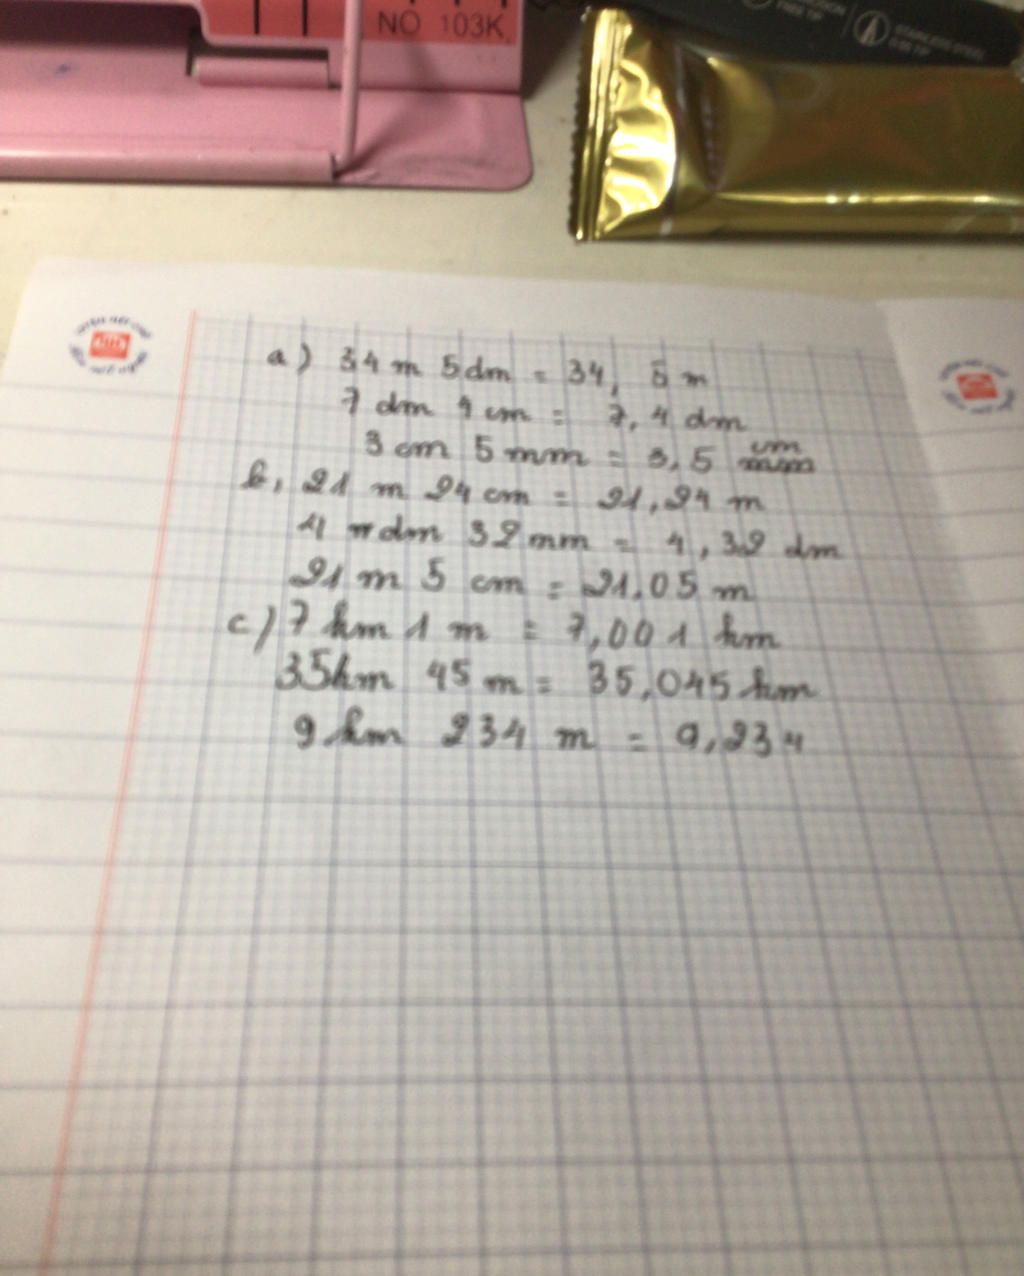 NO 103K
a) 34 m 5dm = 34, 5 m
7 dm 4 cm = 7, 4 dm
3 cm 5 mm = 3,5 cm
b, 21 m 24 cm = 21,24 m
4 dm 32 mm = 4,32 dm
21 m 5 cm = 21,05 m
c) 7 km 1 m = 7,001 km
35km 45 m = 35,045 km
9 km 234 m = 9,234